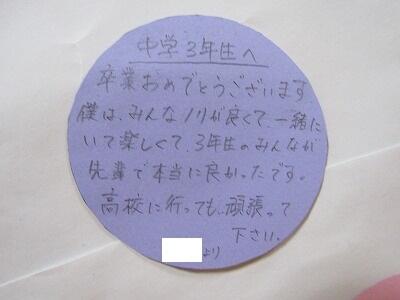 中学3年生へ
卒業おめでとうございます
僕は、みんなノリが良くて、一緒に
いて楽しくて、3年生のみんなが
先輩で本当に良かったです。
高校に行っても、頑張って
下さい。
より